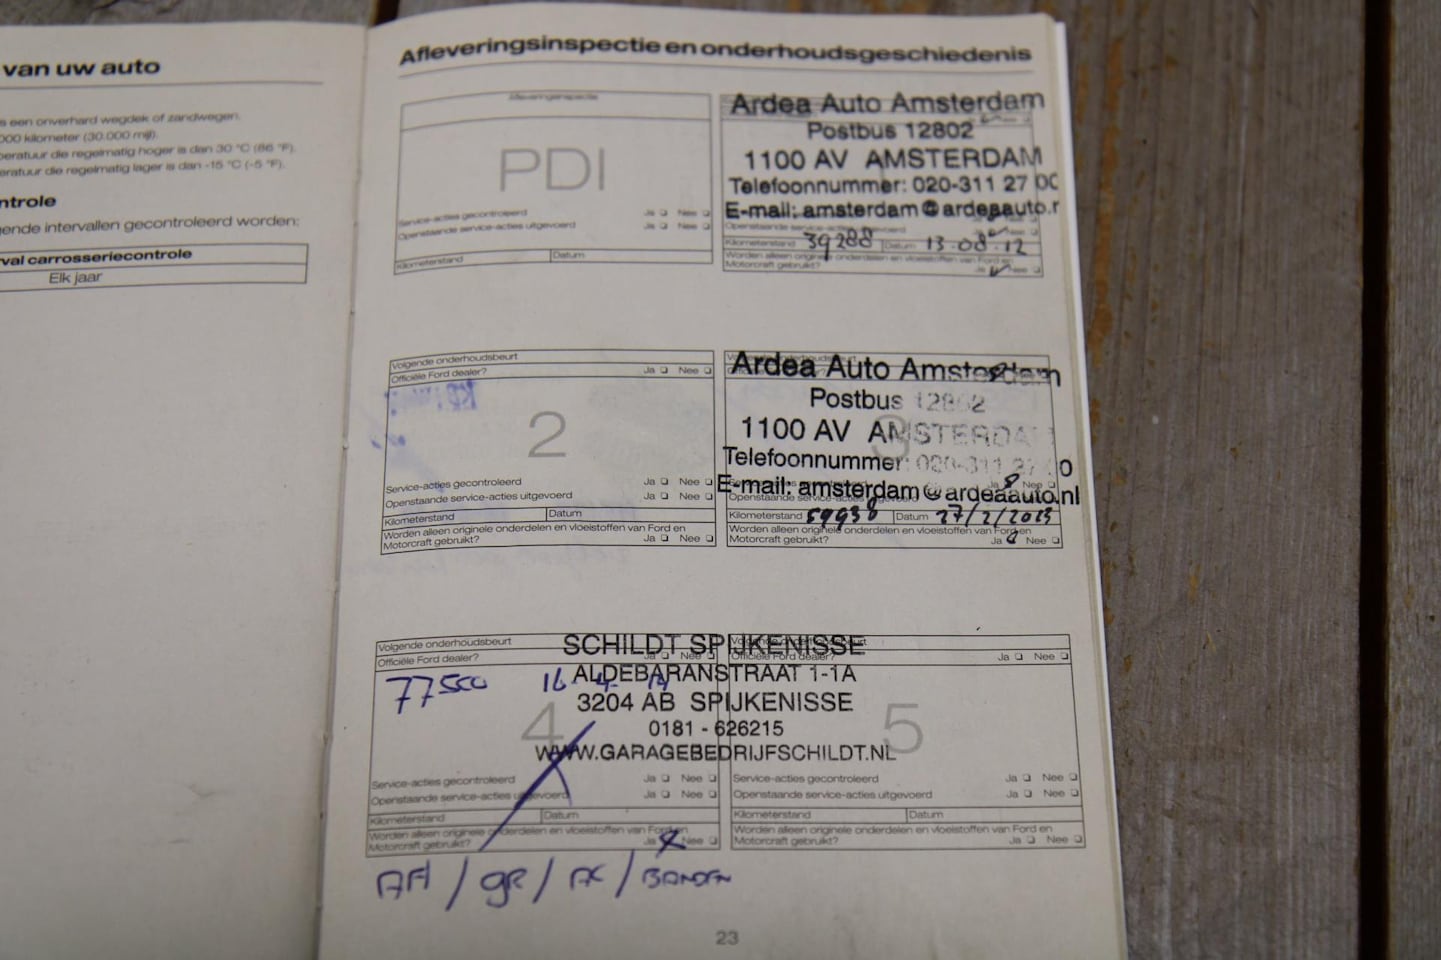 van uw auto
s een onverhard wegdek of zandwegen.
000 kilometer (30.000 mijl).
peratuur die regelmatig hoger is dan 30 °C (86 °F).
eratuur die regelmatig lager is dan -15 °C (-5 °F).
ntrole
gende intervallen gecontroleerd worden:
rval carrosseriecontrole
Elk jaar
Afleveringsinspectie en onderhoudsgeschiedenis
Afleveringsinspectie
PDI
Service-acties gecontroleerd Ja Nee
Openstaande service-acties uitgevoerd Ja Nee
Kilometerstand Datum
Ardea Auto Amsterdam
Postbus 12802
1100 AV AMSTERDAM
Telefoonnummer: 020-311 27 00
E-mail: amsterdam@ardeaauto.n
Openstaande service-acties uitgevoerd
Kilometerstand 39288 Datum 13-08-12
Worden alleen originele onderdelen en vloeistoffen van Ford en
Motorcraft gebruikt? Ja Nee
Volgende onderhoudsbeurt
Officiële Ford dealer? Ja Nee
2
Service-acties gecontroleerd Ja Nee
Openstaande service-acties uitgevoerd Ja Nee
Kilometerstand Datum
Worden alleen originele onderdelen en vloeistoffen van Ford en
Motorcraft gebruikt? Ja Nee
Volgende onderhoudsbeurt
Ardea Auto Amsterdam
Postbus 12802
1100 AV AMSTERDAM
3
Telefoonnummer: 020-311 27 00
Ja Nee
E-mail: amsterdam@ardeaauto.nl
Openstaande service-acties uitgevoerd
Kilometerstand 59938 Datum 27/2/2013
Worden alleen originele onderdelen en vloeistoffen van Ford en
Motorcraft gebruikt? Ja Nee
Volgende onderhoudsbeurt
Officiële Ford dealer? Ja Nee
77500 16-4-14
4
Service-acties gecontroleerd Ja Nee
Openstaande service-acties uitgevoerd Ja Nee
Kilometerstand Datum
Worden alleen originele onderdelen en vloeistoffen van Ford en
Motorcraft gebruikt? Ja Nee
SCHILDT SPIJKENISSE
ALDEBARANSTRAAT 1-1A
3204 AB SPIJKENISSE
0181 - 626215
WWW.GARAGEBEDRIJFSCHILDT.NL
Volgende onderhoudsbeurt
Officiële Ford dealer? Ja Nee
5
Service-acties gecontroleerd Ja Nee
Openstaande service-acties uitgevoerd Ja Nee
Kilometerstand Datum
Worden alleen originele onderdelen en vloeistoffen van Ford en
Motorcraft gebruikt? Ja Nee
/ gr / / BANDEN
23